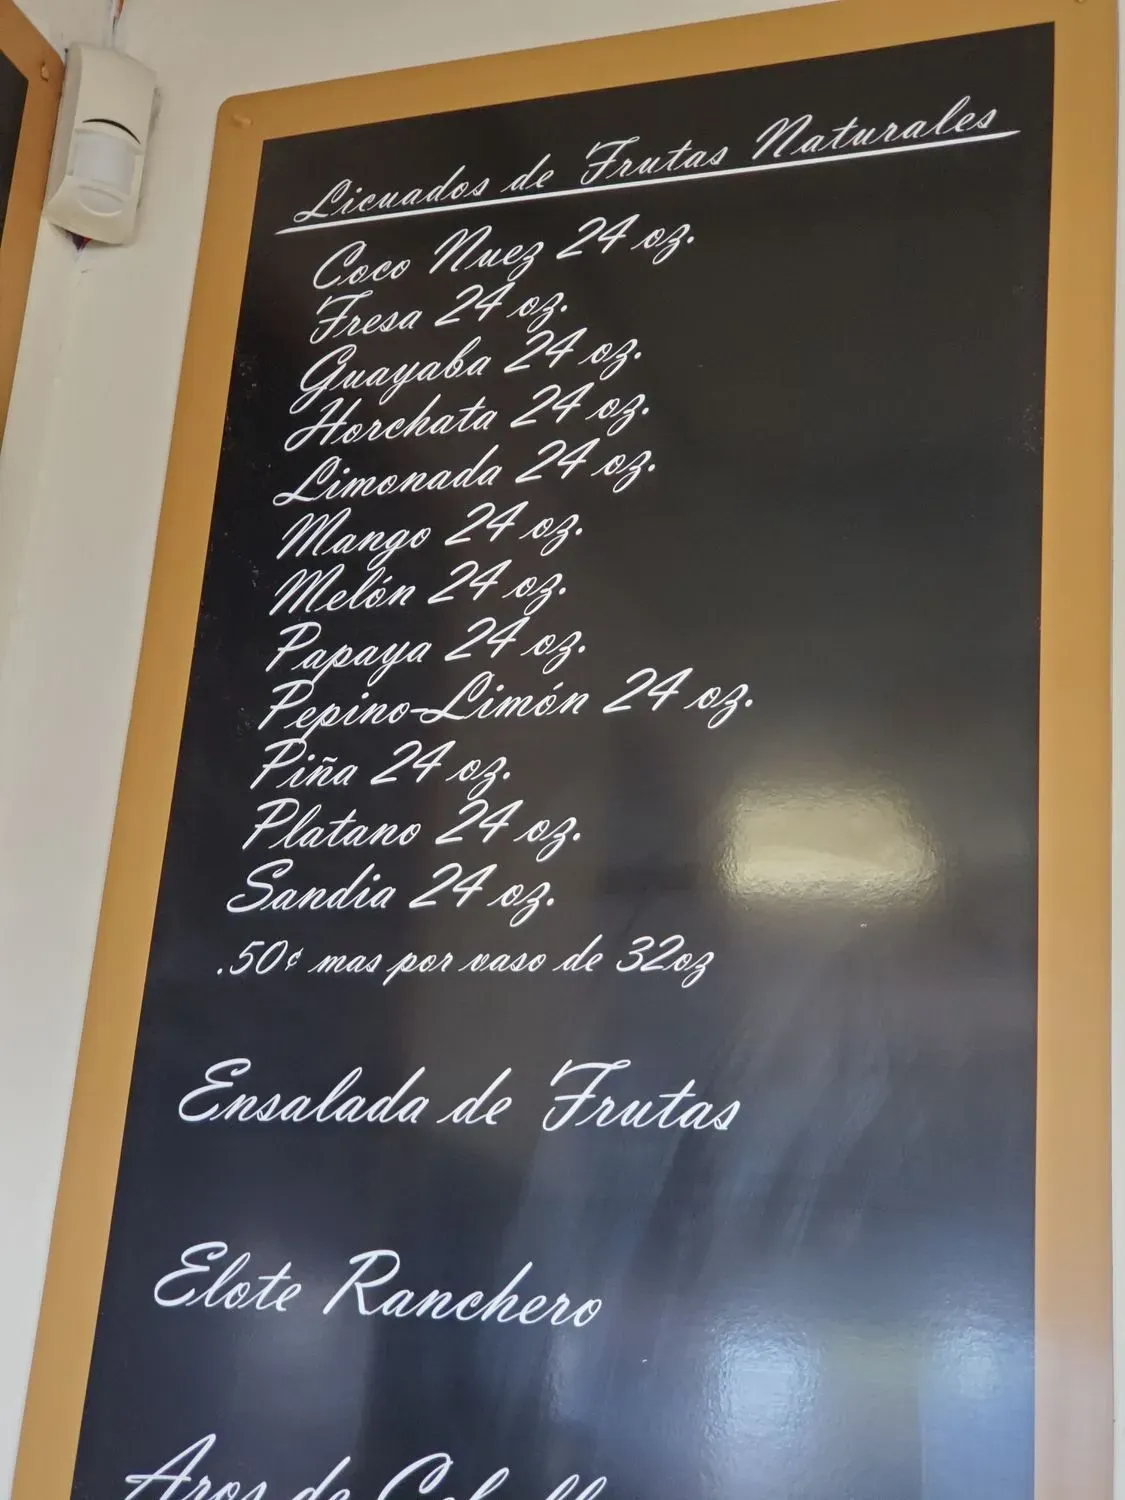 Licuados de Frutas Naturales
Coco Nuez 24 oz.
Fresa 24 oz.
Guayaba 24 oz.
Horchata 24 oz.
Limonada 24 oz.
Mango 24 oz.
Melón 24 oz.
Papaya 24 oz.
Pepino-Limón 24 oz.
Piña 24 oz.
Platano 24 oz.
Sandia 24 oz.
.50¢ mas por vaso de 32oz
Ensalada de Frutas
Elote Ranchero
Aros de